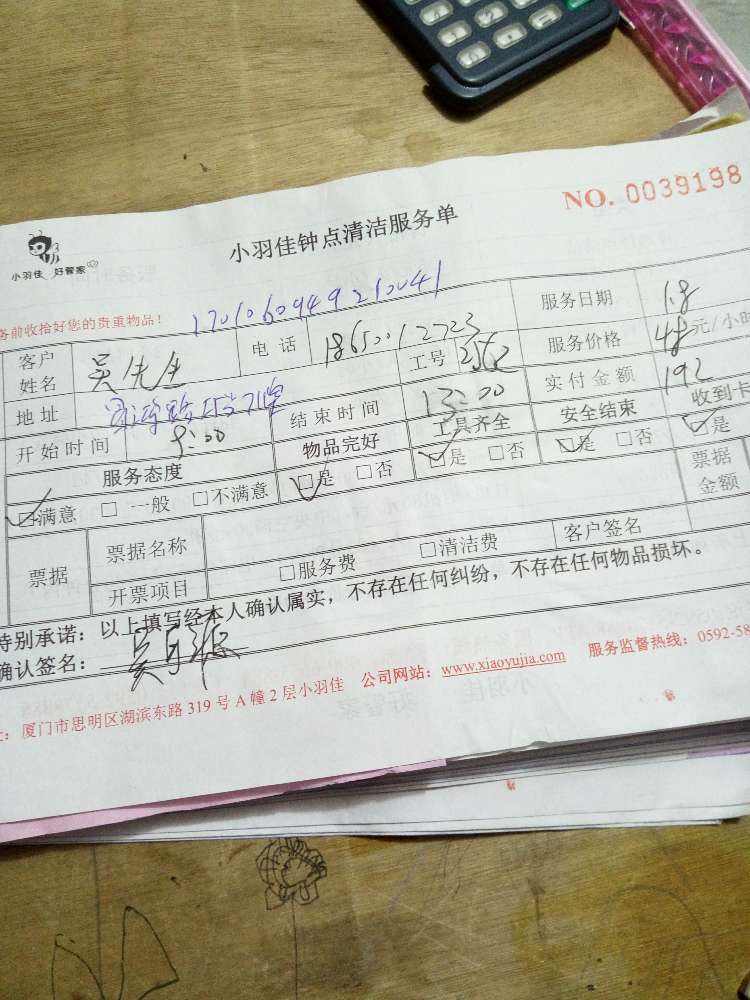 NO. 0039198
小羽佳 好管家
小羽佳钟点清洁服务单
务前收拾好您的贵重物品!
17010609449210041
客户姓名 吴先生 电话 18650012723 工号 2562 服务日期 1.8
服务价格 48元/小时
地址 结束时间 13:00 实付金额 192
开始时间 9:00 物品完好 工具齐全 安全结束 收到卡
服务态度
满意 □ 一般 □不满意 是 □否 是 □否 是 □否 是
票据 票据名称 票据金额
开票项目 □服务费 □清洁费 客户签名
特别承诺:以上填写经本人确认属实,不存在任何纠纷,不存在任何物品损坏。
确认签名:
:厦门市思明区湖滨东路 319 号 A 幢 2 层小羽佳 公司网站:www.xiaoyujia.com 服务监督热线:0592-58